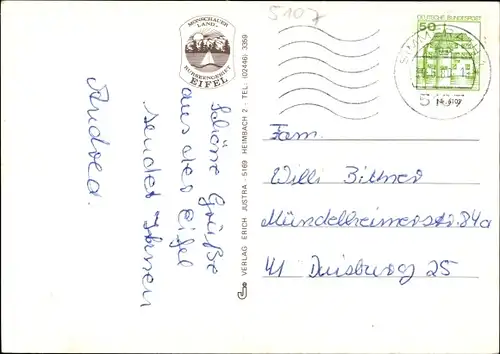 5107
MONSCHAUER
LAND-
RURSEENGEBIET
EIFEL
Schöne Grüße
aus der Eifel
sendet Ihnen
Andrea.
VERLAG ERICH JUSTRA - 5169 HEIMBACH 2 - TEL.: (02446) 3359
DEUTSCHE BUNDESPOST
50
Fam.
Willi Bittner
Mündelheimerstr. 84a
41 Duisburg 25